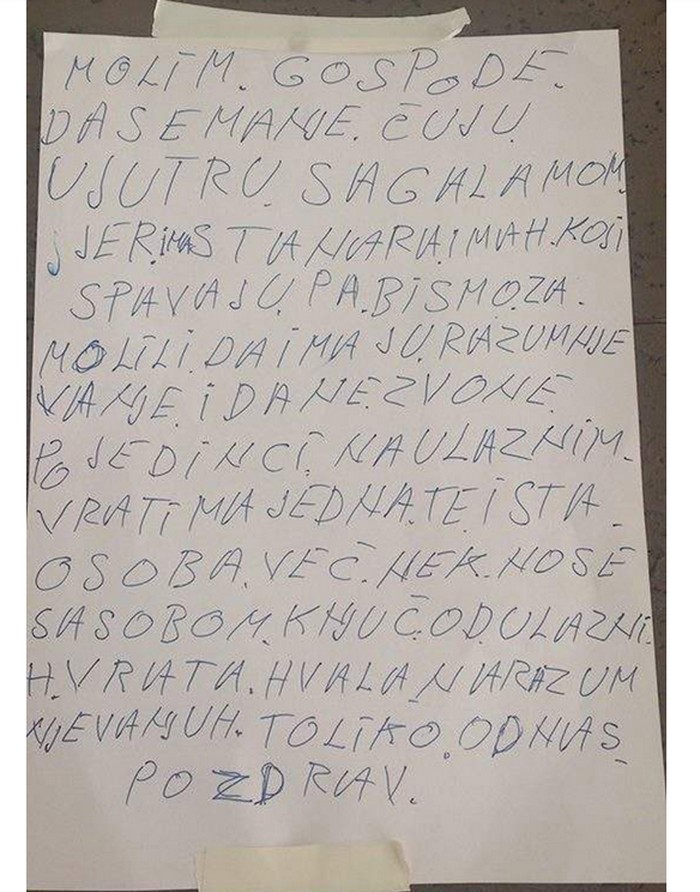 MOLIM. GOSPODE.
DA SE MANJE. ČUJU
UJUTRU. SAGALAMOM,
JJER.IMA STANARA IMAH. KOJI
SPAVAJU. PA. BISMO. ZA.
MOLILI. DA IMAJU. RAZUMNJE
VANJE. I DA NE. ZVONE.
POJEDINCI. NA ULAZNIM.
VRATIMA JEDNA. TE. ISTA.
OSOBA. VEČ. NEK. NOSE
SASOBOM. KNJUČ. OD. ULAZNI.
H. VRATA. HVALA NA RAZUM
NJEVANJUH. TOLIKO. OD NAS.
POZDRAV.